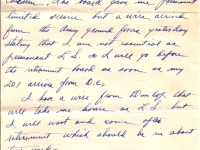 The board gave me permanent
limited service but a wire arrived
from the Army ground forces yesterday
stating that I am not essential on
permanent L.S. so I will go before
the retirement board as soon as my
201 arrives from D.C.
I have a wire from Dunlop that
will take me home on LS but
I will wait and come after
retirement which should be in about
two weeks